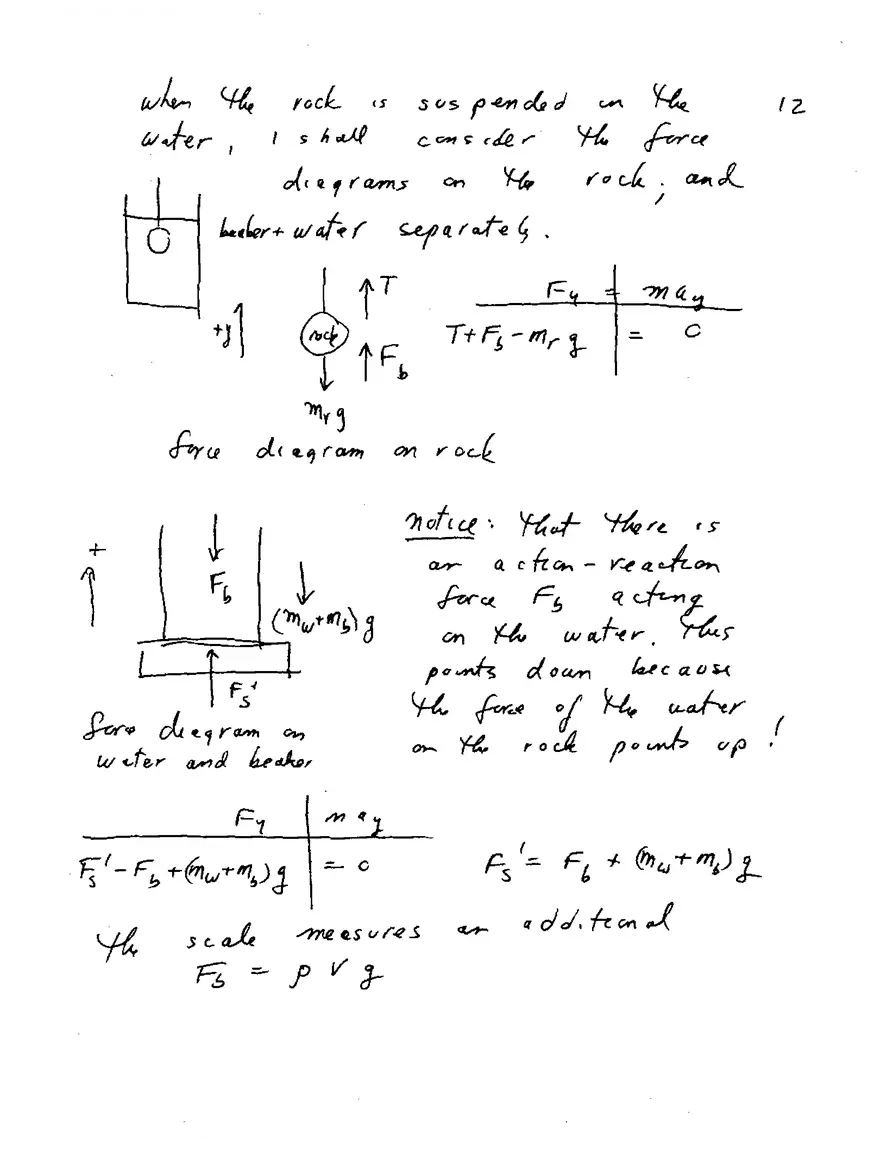 when the rock is suspended in the 12
water, I shall consider the force
diagrams on the rock, and
beaker + water separately.
T
F_y = m a_y
+y
rock
T + F_b - m_r g = 0
F_b
m_r g
force diagram on rock
notice: that there is
+
an action-reaction
F_b
force F_b acting
(m_w + m_b) g
on the water. This
points down because
F_s'
the force of the water
force diagram on
on the rock points up!
water and beaker
F_y m a_y
F_s' - F_b + (m_w + m_b) g = 0 F_s' = F_b + (m_w + m_b) g
the scale measures an additional
F_b = ρ V g